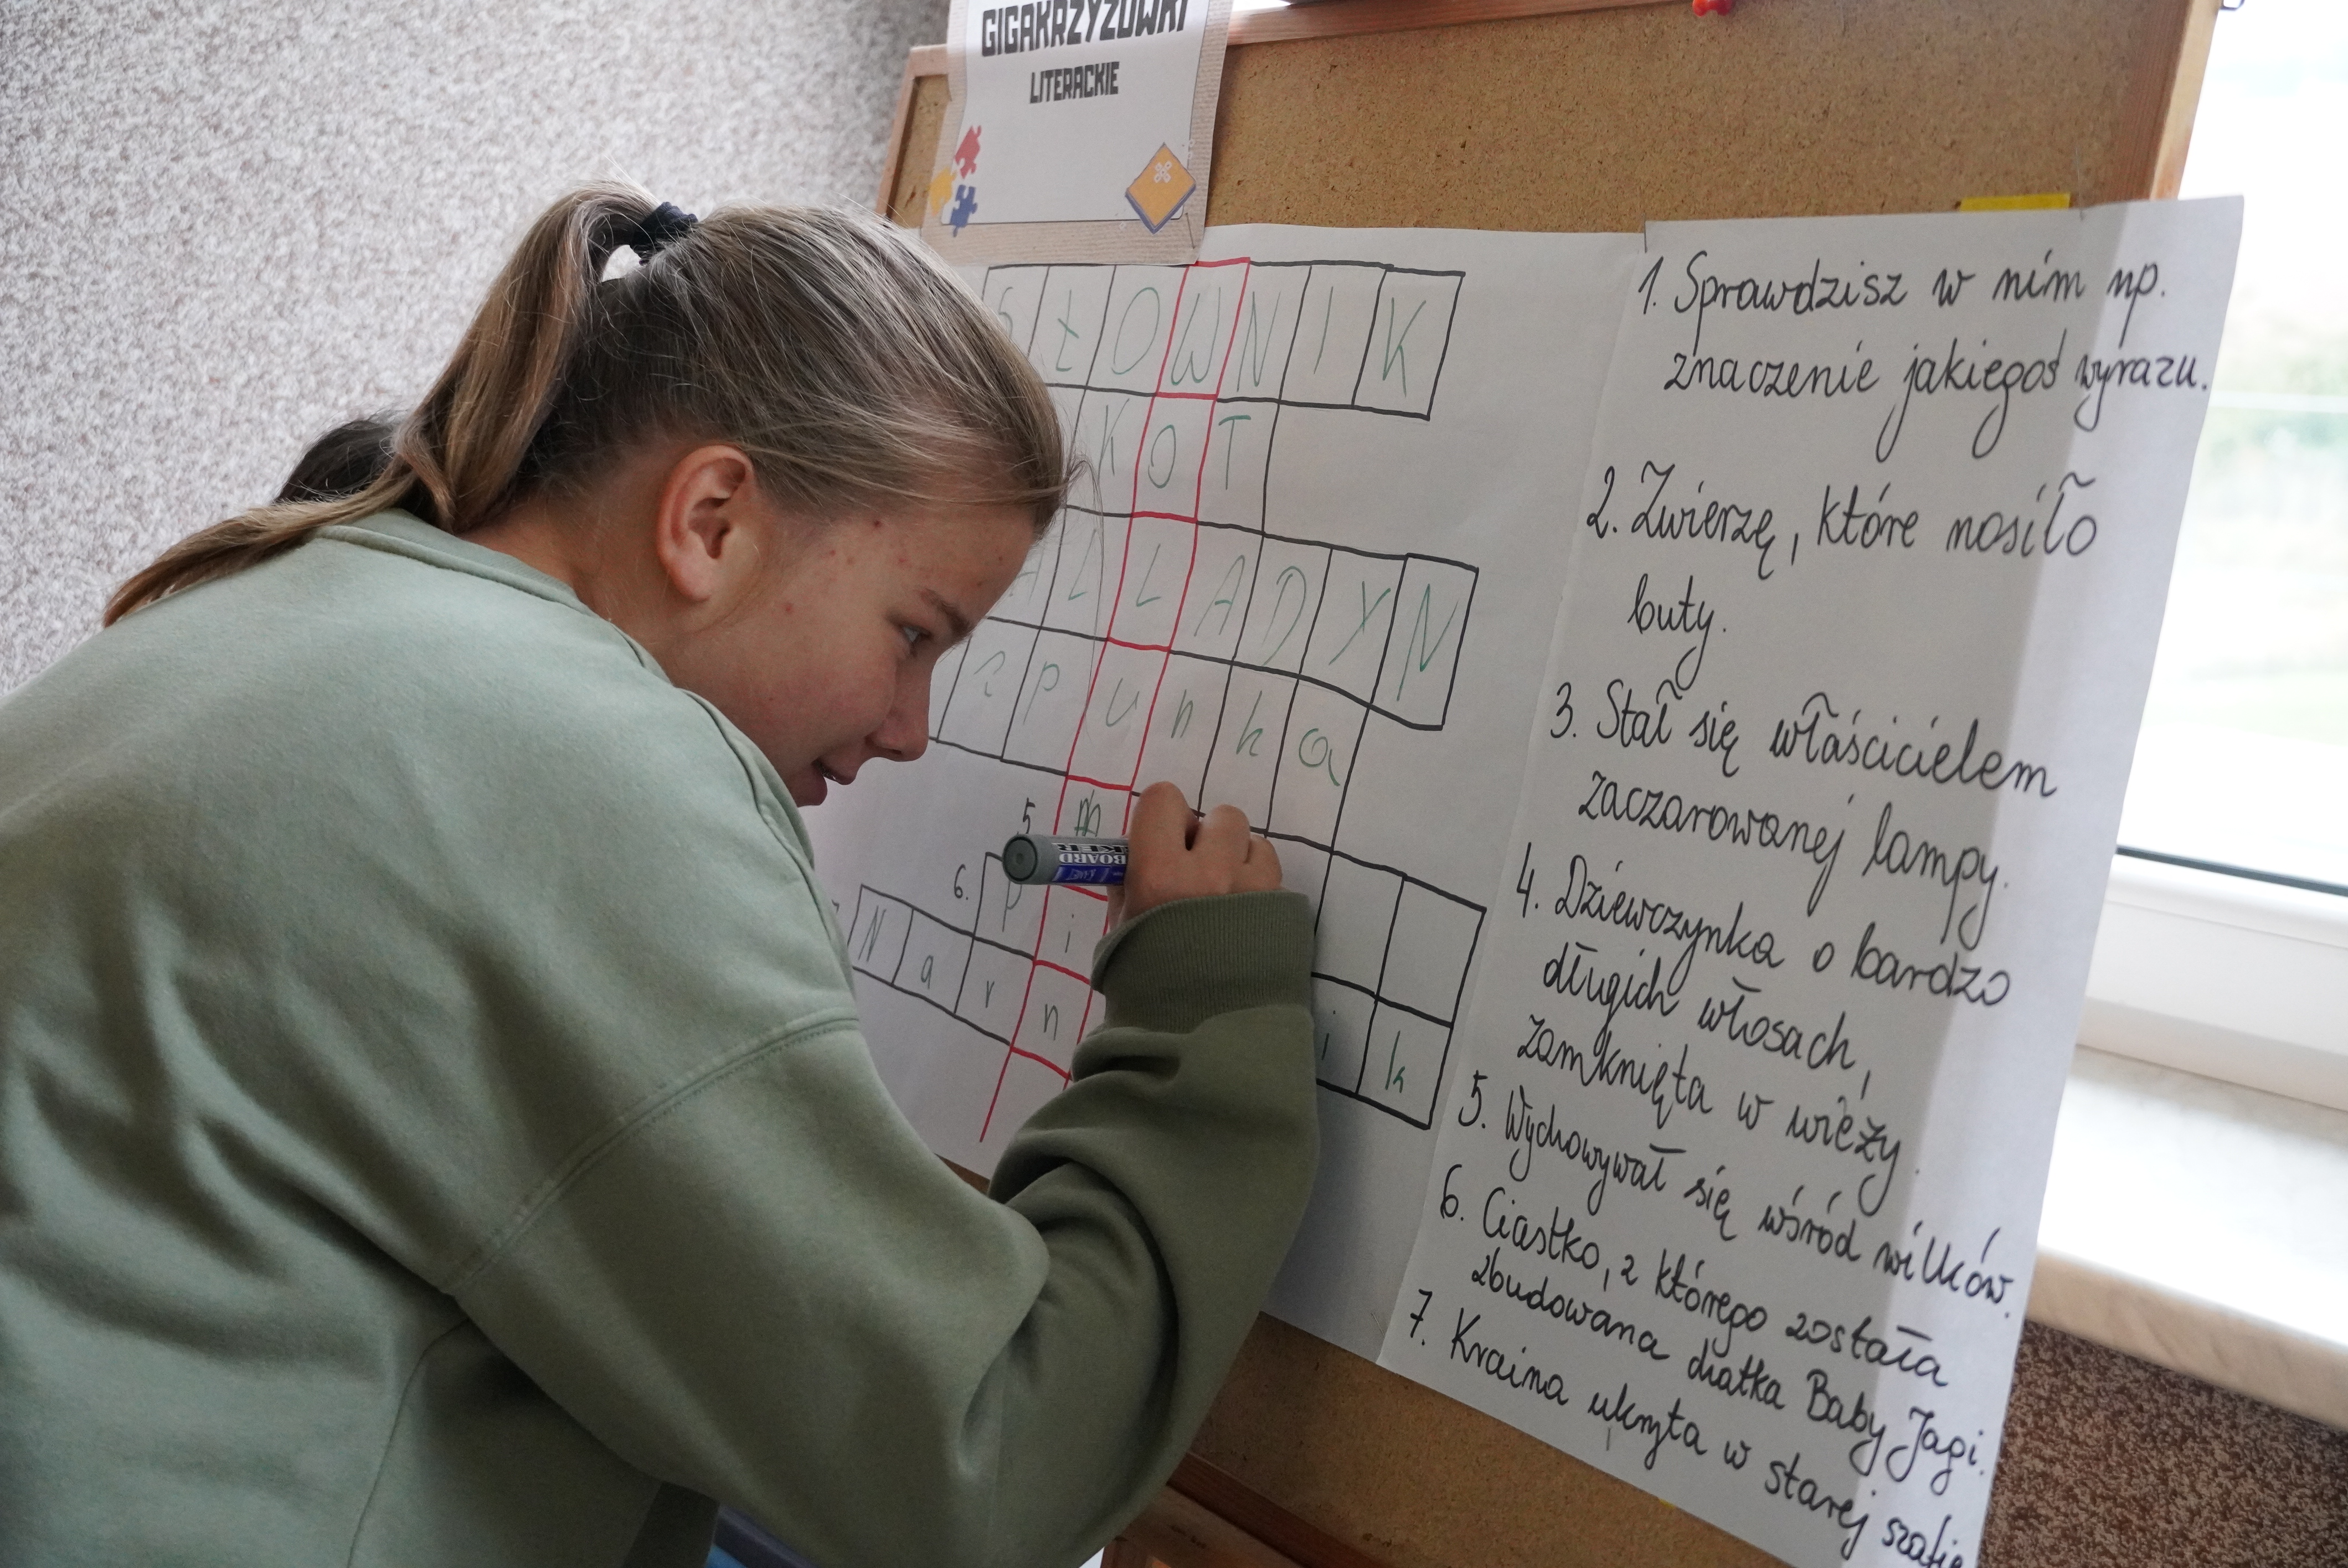 GIGAKRZYŻÓWKI
LITERACKIE
S Ł O W N I K
K O T
A L L A D Y N
z p u n k a
5 m
BOARD
6. P i
N a r n
i k
1. Sprawdzisz w nim np.
znaczenie jakiegoś wyrazu.
2. Zwierzę, które nosiło
buty.
3. Stał się właścicielem
zaczarowanej lampy.
4. Dziewczynka o bardzo
długich włosach,
zamknięta w wieży.
5. Wychowywał się wśród wilków.
6. Ciastko, z którego została
zbudowana chatka Baby Jagi.
7. Kraina ukryta w starej szafie